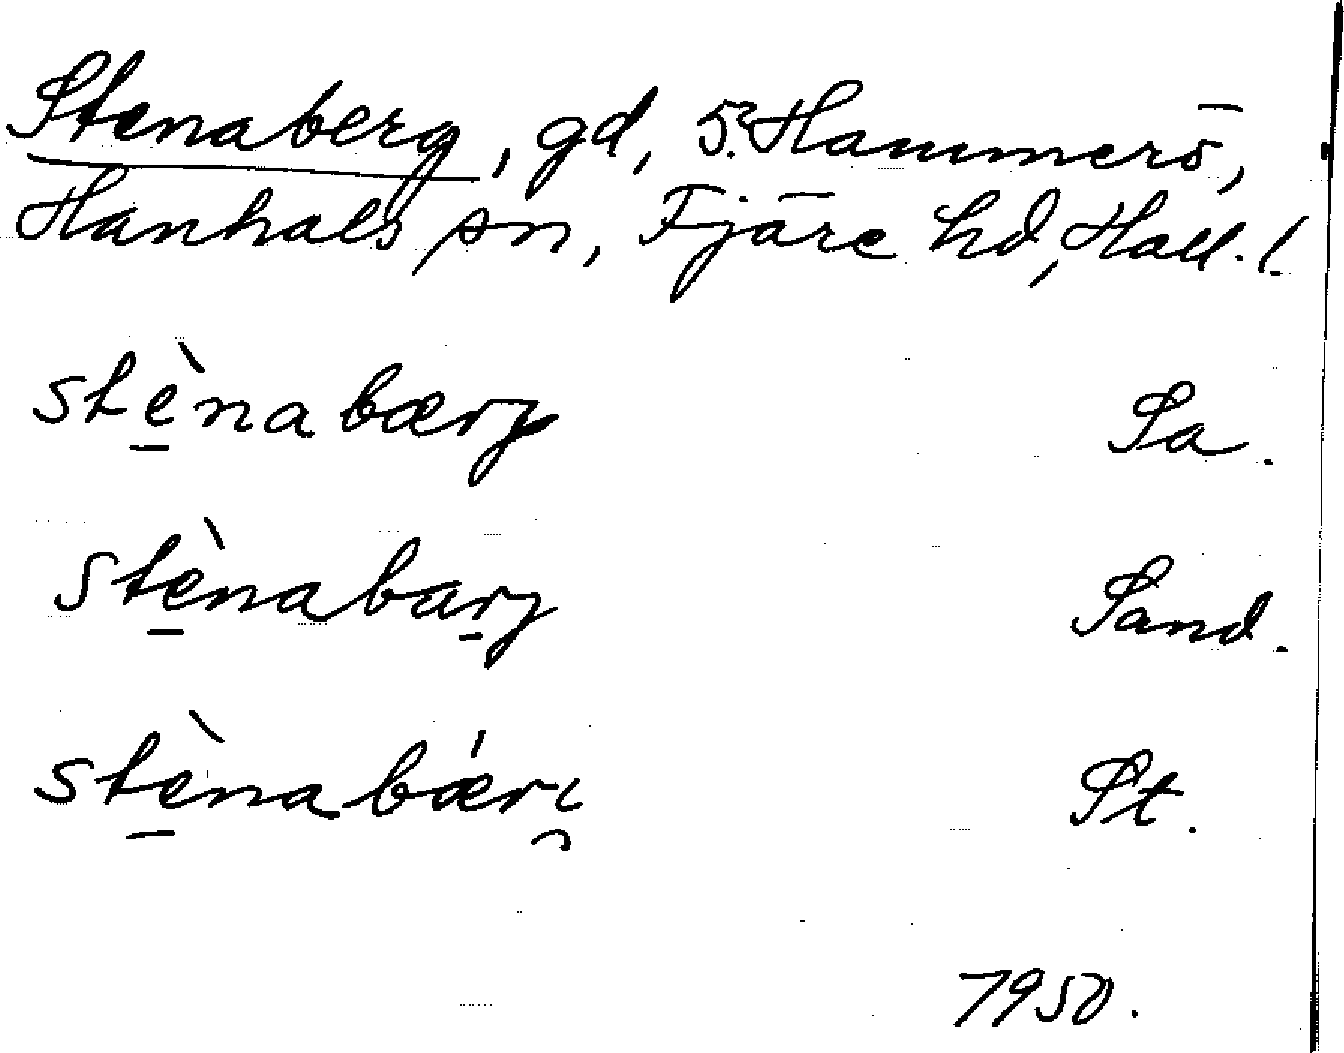 Stenaberg, gd, 5. Hammerö,
Hanhals sn, Fjäre hd, Hall. l.
stè̠nabærj Sa.
stè̠nabar̠j Sand.
stè̠nabǽri̯ St.
1950.